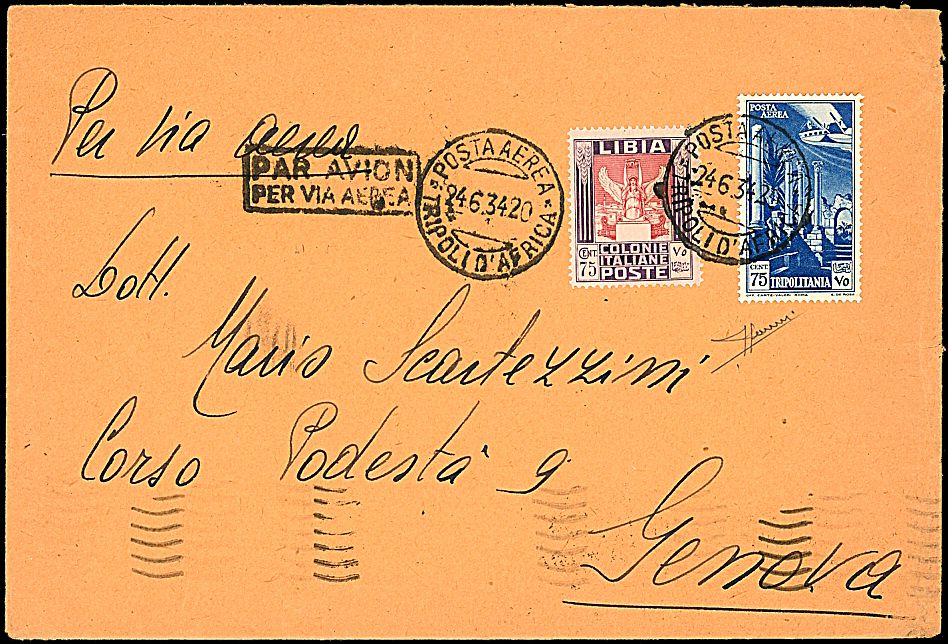 Per via aerea
PAR AVION
PER VIA AEREA
POSTA AEREA
24.6.34 20
TRIPOLI D'AFRICA
LIBIA
COLONIE
ITALIANE
POSTE
CENT.
75
٧٥
POSTA AEREA
24.6.34 20
TRIPOLI D'AFRICA
POSTA
AEREA
CENT
75
TRIPOLITANIA
٧٥
OFF. CARTE-VALORI ROMA
Dott.
Mario Scartezzini
Corso Podestà 9
Genova